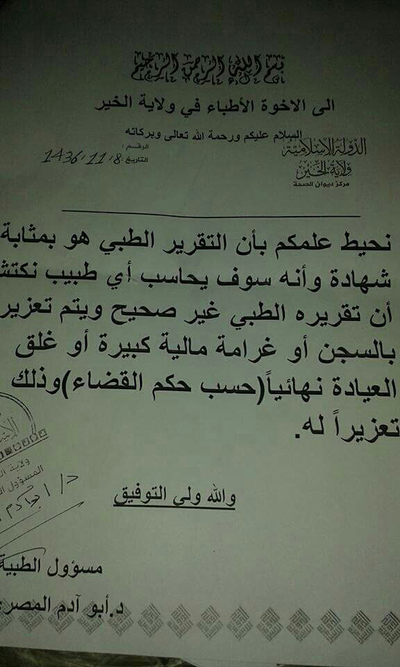 بسم الله الرحمن الرحيم
الى الاخوة الأطباء في ولاية الخير
السلام عليكم ورحمة الله تعالى وبركاته
الدولة الإسلامية
ولاية الخير
مركز ديوان الصحة
الرقم :
التاريخ : 1436/11/8
نحيط علمكم بأن التقرير الطبي هو بمثابة
شهادة وأنه سوف يحاسب أي طبيب نكتش
أن تقريره الطبي غير صحيح ويتم تعزير
بالسجن أو غرامة مالية كبيرة أو غلق
العيادة نهائياً(حسب حكم القضاء)وذلك
تعزيراً له.
والله ولي التوفيق
ولاية
المسؤول
مسؤول الطبية
د.أبو آدم المصر